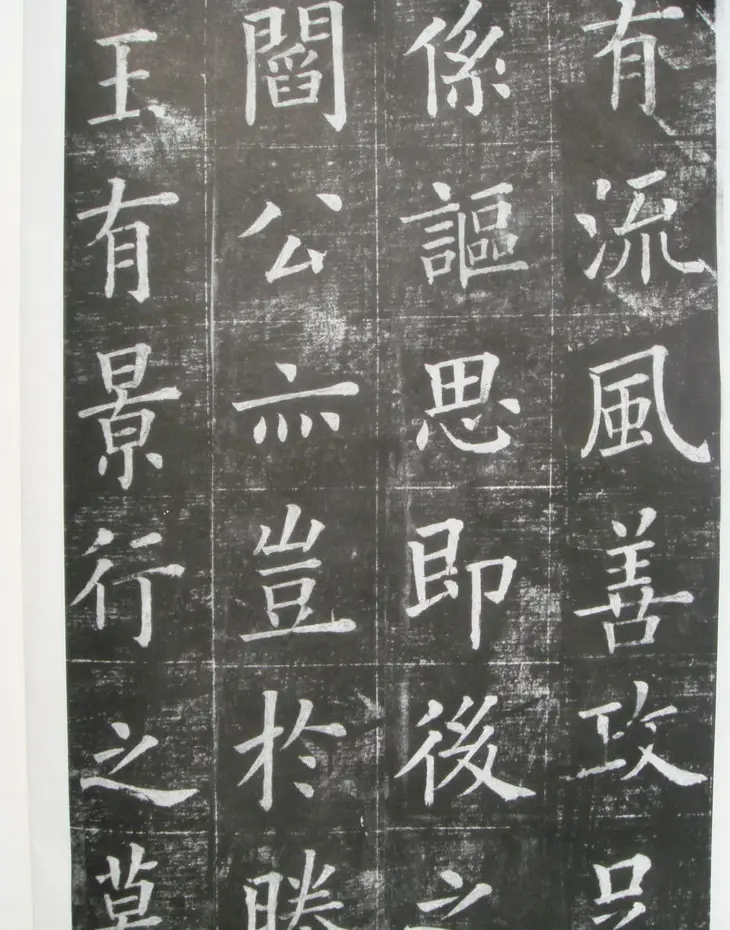 有流風善政
係謳思即後之
閻公亦豈於勝
王有景行之莫